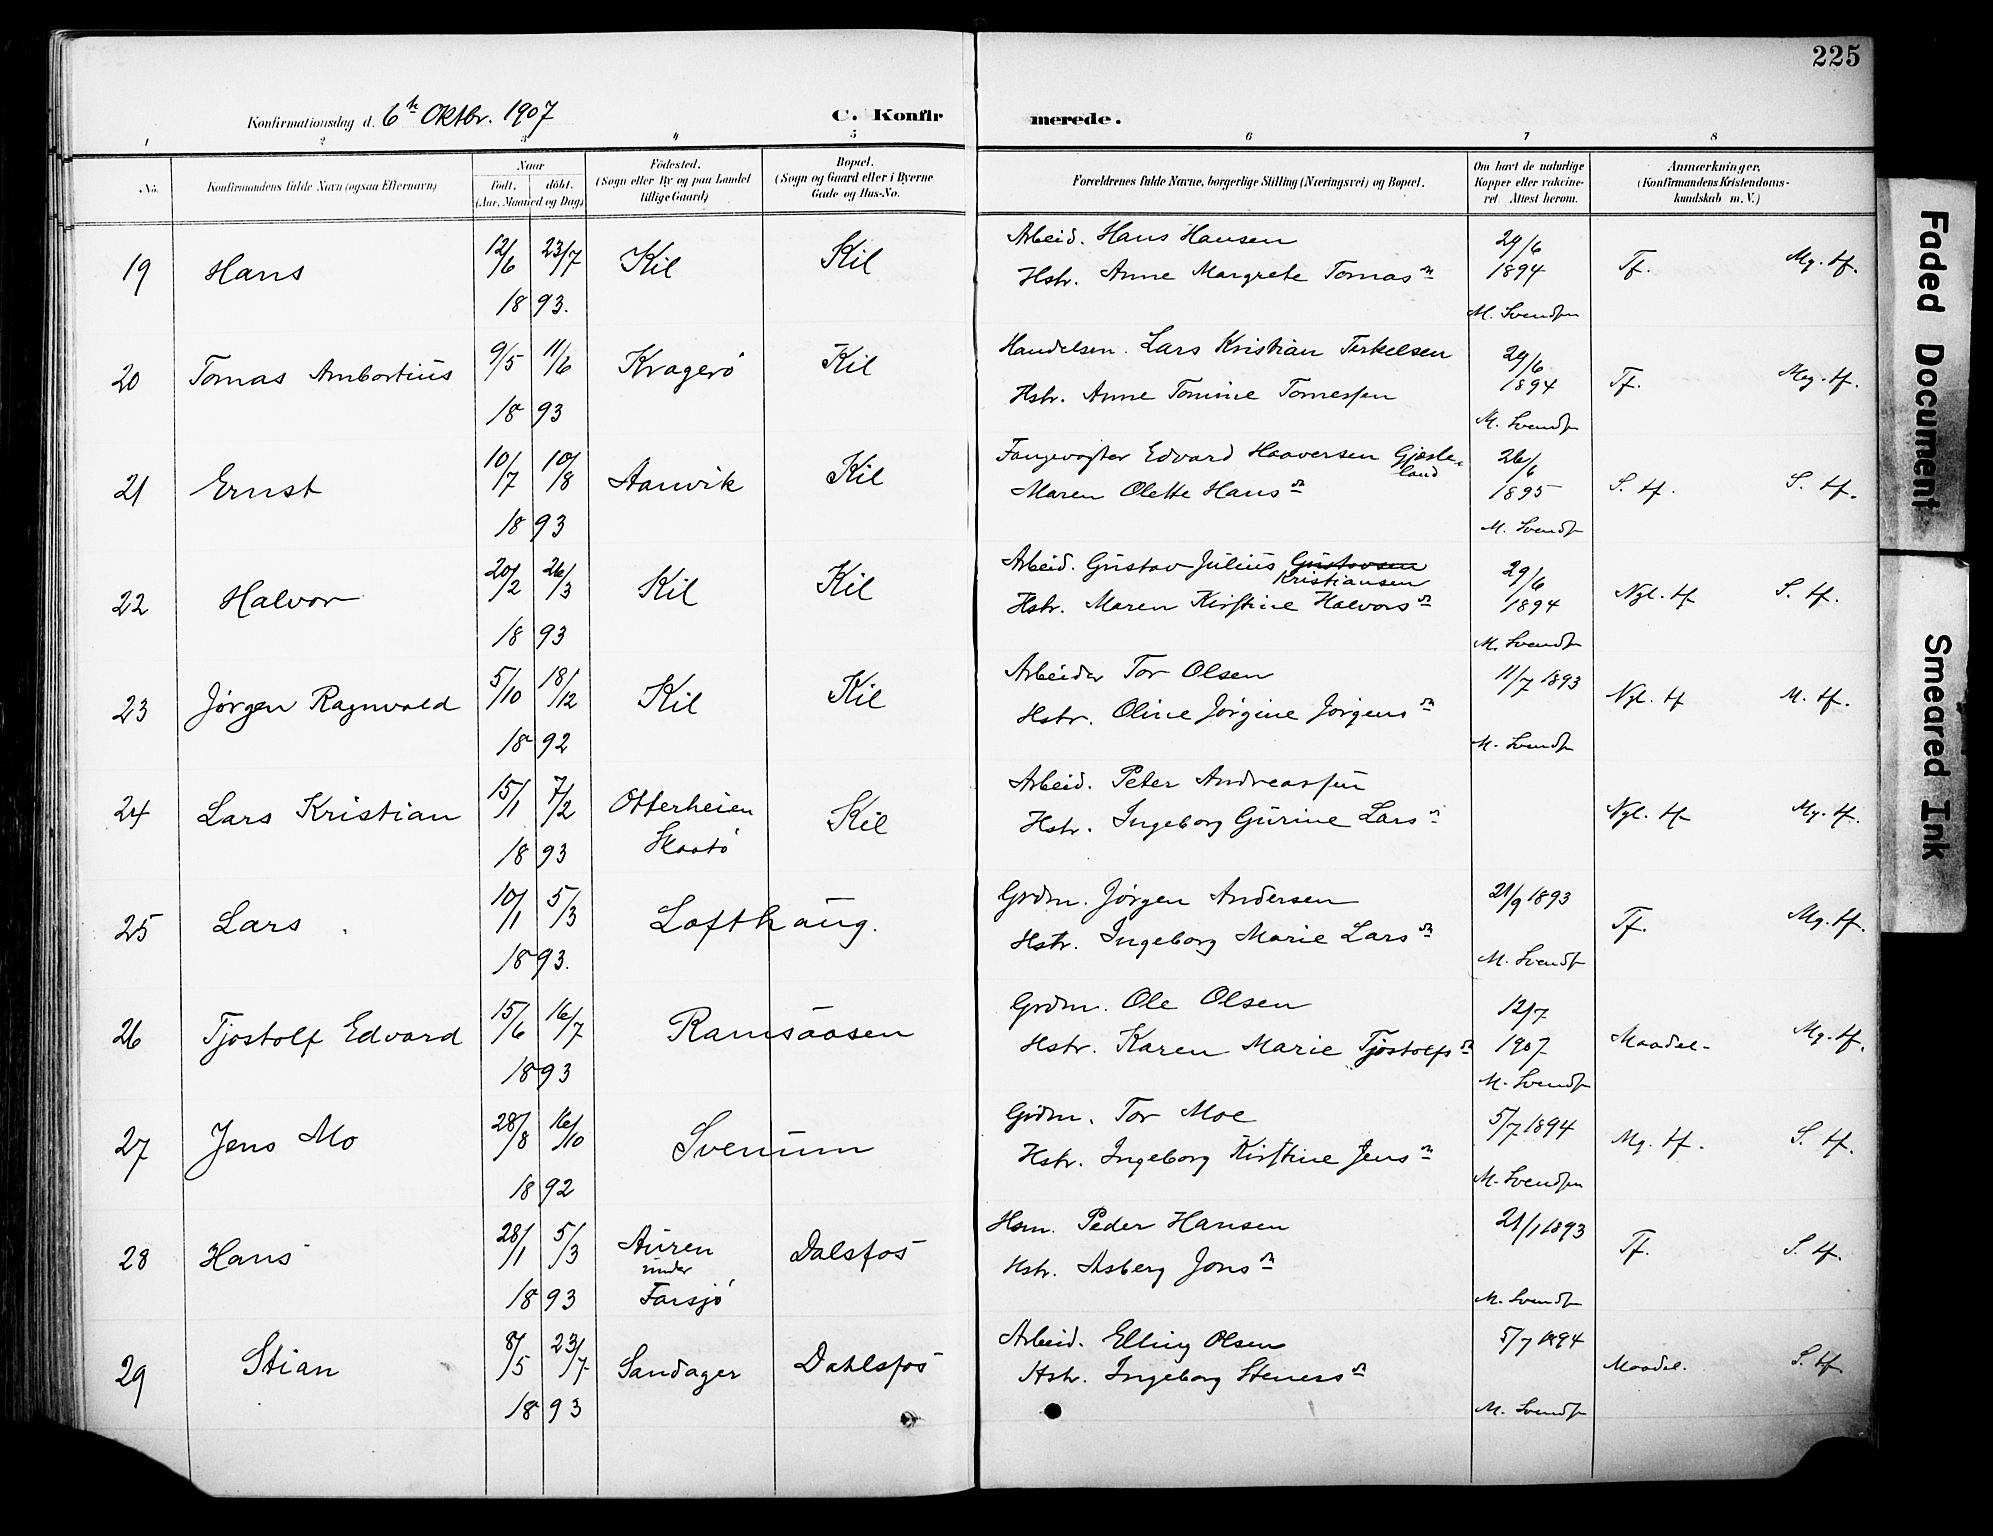 225
Konfirmationsdag d. 6te Oktbr. 1907
C. Konfirmerede.
1 2 3 4 5 6 7 8
No.
Konfirmandens fulde Navn (ogsaa Efternavn)
Naar
født, døbt.
(Aar, Maaned og Dag)
Fødested.
(Sogn eller By og paa Landet
tillige Gaard)
Bopæl.
(Sogn og Gaard eller i Byerne
Gade og Hus-No.
Forældrenes fulde Navne, borgerlige Stilling (Næringsvei) og Bopæl.
Om havt de naturlige
Kopper eller vakcine-
ret. Attest herom.
Anmærkninger,
(Konfirmandens Kristendoms-
kundskab m. V.)
19 Hans 12/6 23/7 1893. Kil Kil
Arbeid. Hans Hansen
Hstr. Anne Margrete Tomasdt
29/6
1894
M. Svendsen
Tf. Mg. tf.
20 Tomas Ambortius 9/5 11/6 1893 Kragerö Kil
Handelsm. Lars Kristian Terkelsen
Hstr. Anne Tomine Tomessen
29/6
1894
M. Svends
Tf. Meg. tf.
21 Ernst 10/7 10/8 1893 Aanvik Kil
Fangevogter Edvard Haaversen Gjæsle-
land
Maren Olette Hansdt
26/6
1895
M. Svends
S. tf. S. tf.
22 Halvor 20/2 26/3 1893 Kil Kil
Arbeid. Gustav Julius Gustavsen
Kristiansen
Hstr. Maren Kirstine Halvorsdt
29/6
1894
M. Svends
Ngl. tf S. tf.
23 Jørgen Ragnvald 5/10 18/12 1892 Kil Kil
Arbeider Tor Olsen
Hstr. Oline Jørgine Jørgensdt
11/7 1893
M. Svends
Ngl. tf M. tf.
24 Lars Kristian 15/1 7/2 1893 Otterheien
Skaatö Kil
Arbeid. Peter Andreassen
Hstr. Ingeborg Gurine Larsdt
Ngl. tf Mg. tf.
25 Lars 10/1 5/3 1893. Lofthaug.
Grdm. Jørgen Andersen
Hstr. Ingeborg Marie Larsdt
21/9 1893
M. Svends
Tf. Mg. tf.
26 Tjostolf Edvard 15/6 16/7 1893 Ramsaasen
Grdm. Ole Olsen
Hstr. Karen Marie Tjostolfsdt
12/7
1907
M. Svends
Maadel- Mg. tf.
27 Jens Mo 28/8 16/10 1892 Svenum
Grdm. Tor Moe
Hstr. Ingeborg Kirstine Jensdt
5/7 1894
M. Svendsen
Mg. tf. S. tf.
28 Hans 28/1 5/3 1893 Auren
under
Farsjö Dalsfos
Hsm. Peder Hansen
Hstr. Asberg Jonsdt
21/1 1893
M. Svends
Tf. S. tf.
29 Stian 8/5 23/7 1893 Sandager Dahlsfos
Arbeid. Elling Olsen
Hstr. Ingeborg Stenersdt
5/7 1894
M. Svends
Maadel. S. tf
Faded Document
Smeared Ink